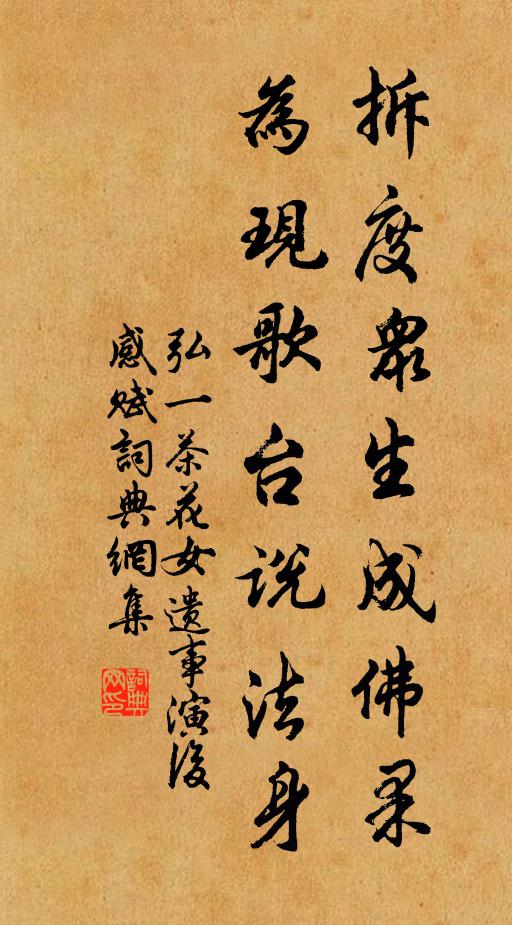 拆度眾生成佛果
為現歌台說法身
弘一茶花女遺事演後
感賦詞典網集
詞典網印